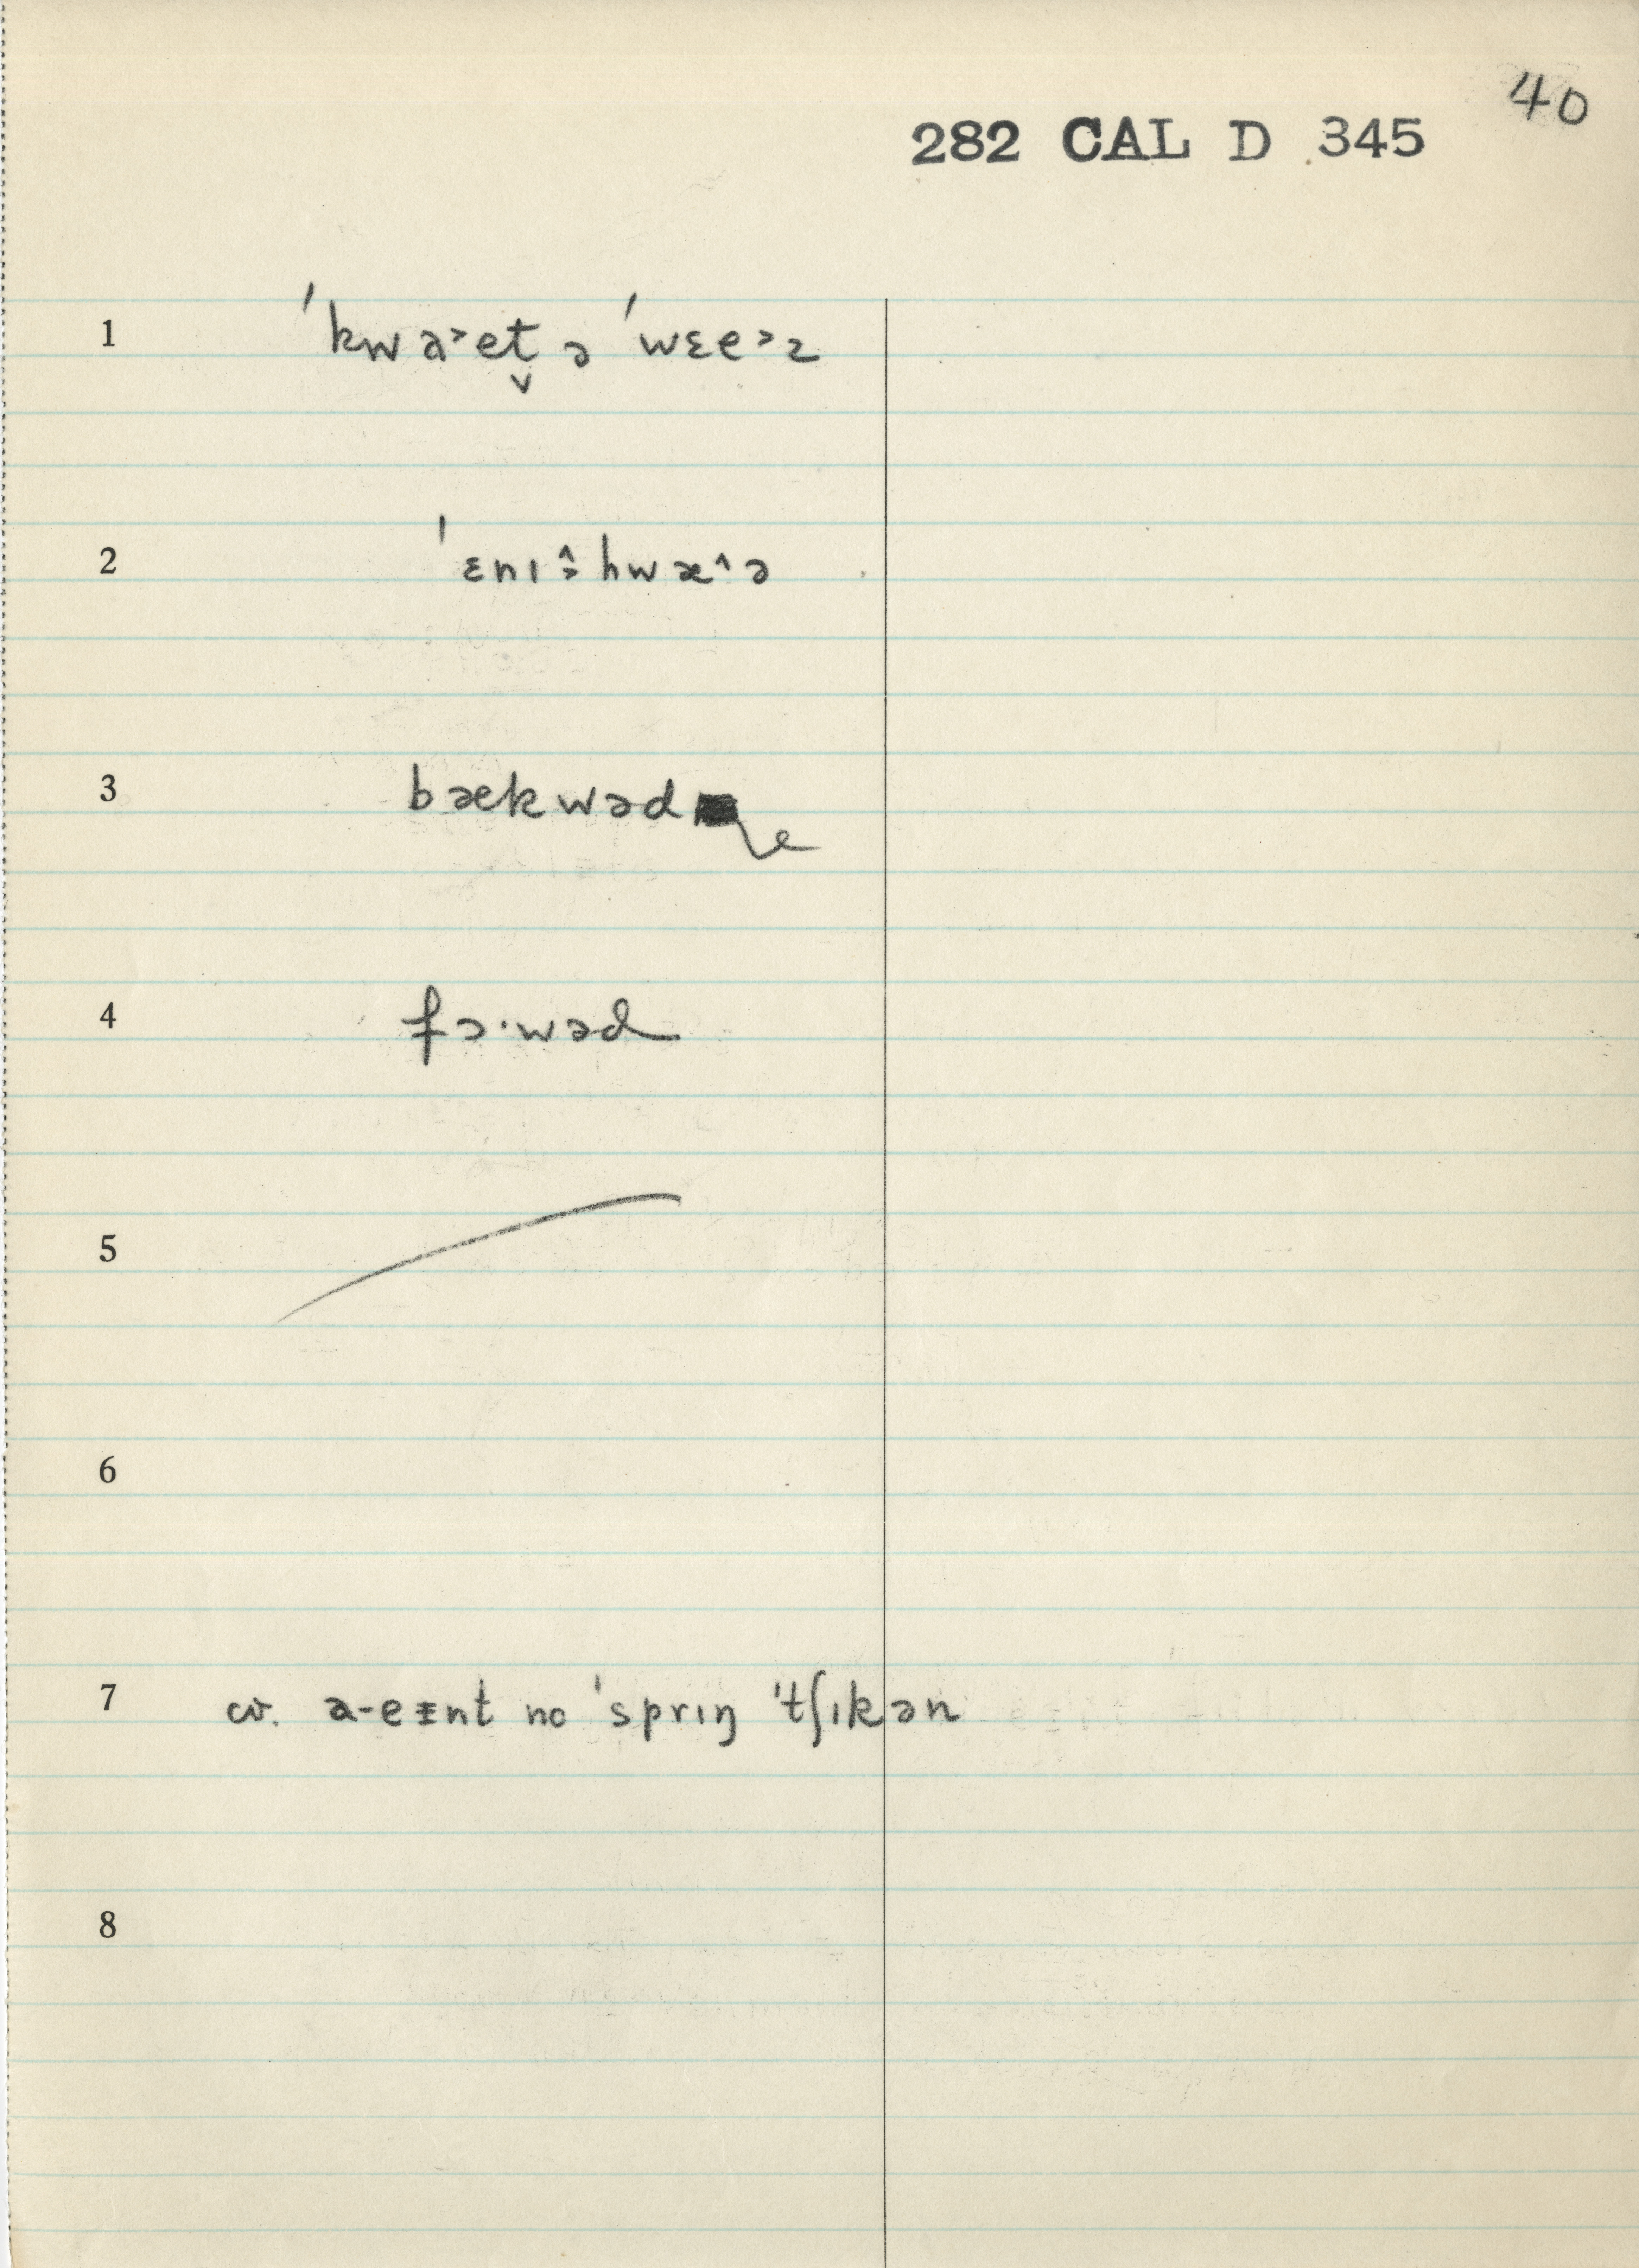 40
282 CAL D 345
1 ˈkwa˃et̬ ə ˈwɛe˃z
2 ˈɛnɪ˄˃hwæ˄ə
3 bækwəd
4 fɔ·wəd
5
6
7 cv. a-eɪnt no ˈsprɪŋ ˈtʃɪkən
8